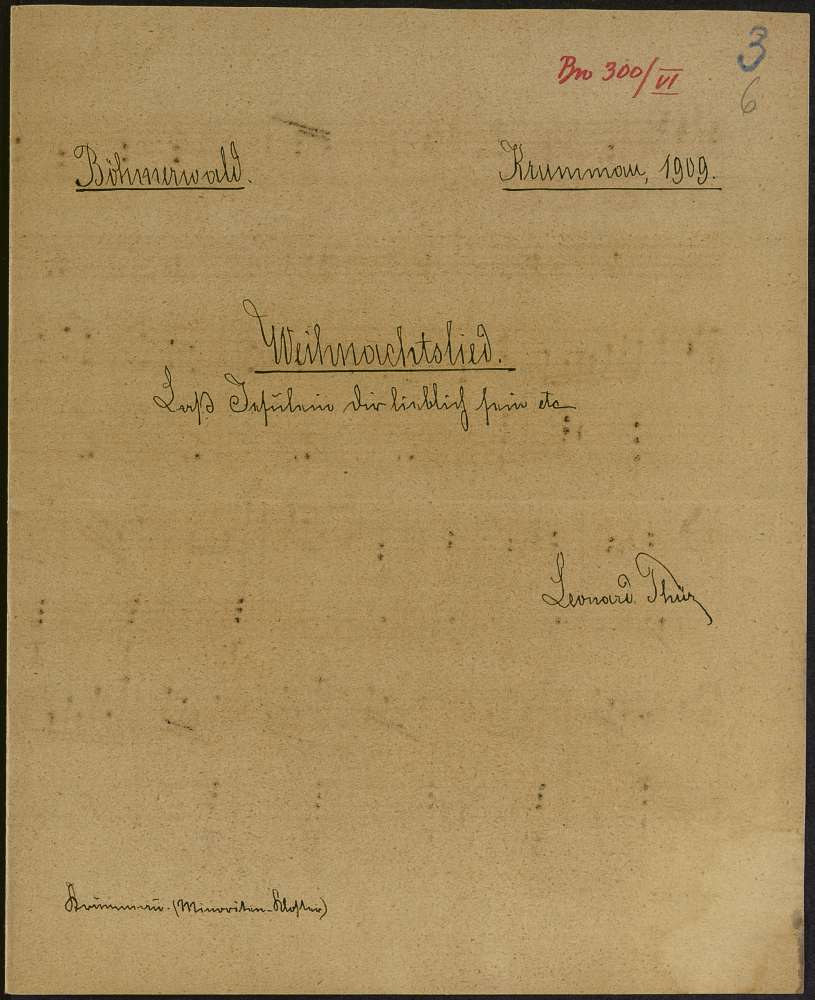 3
Bn 300/VI
6
Böhmerwald.
Krummau, 1909.
Weihnachtslied.
Laß Jesulein dir lieblich sein etc
Leonard Thür
Krummau (Minoriten-Kloster)